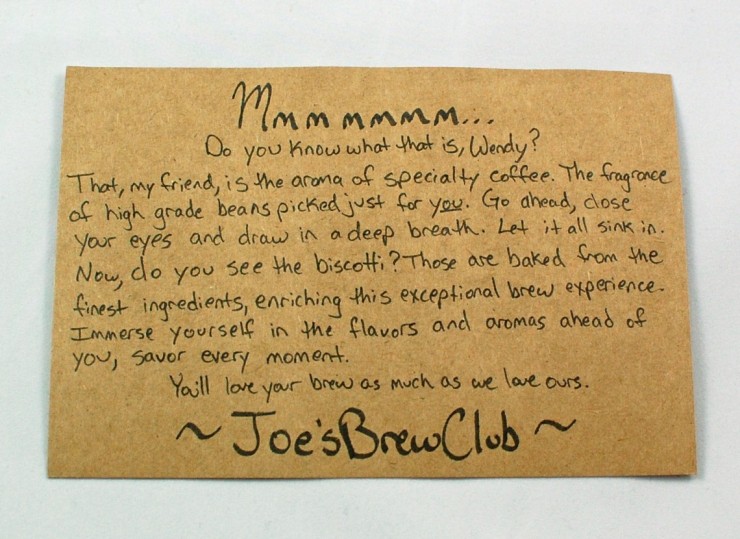 Mmmmmmm...
Do you know what that is, Wendy?
That, my friend, is the aroma of specialty coffee. The fragrance
of high grade beans picked just for you. Go ahead, close
your eyes and draw in a deep breath. Let it all sink in.
Now, do you see the biscotti? Those are baked from the
finest ingredients, enriching this exceptional brew experience.
Immerse yourself in the flavors and aromas ahead of
you, savor every moment.
You'll love your brew as much as we love ours.
~ Joe's Brew Club ~